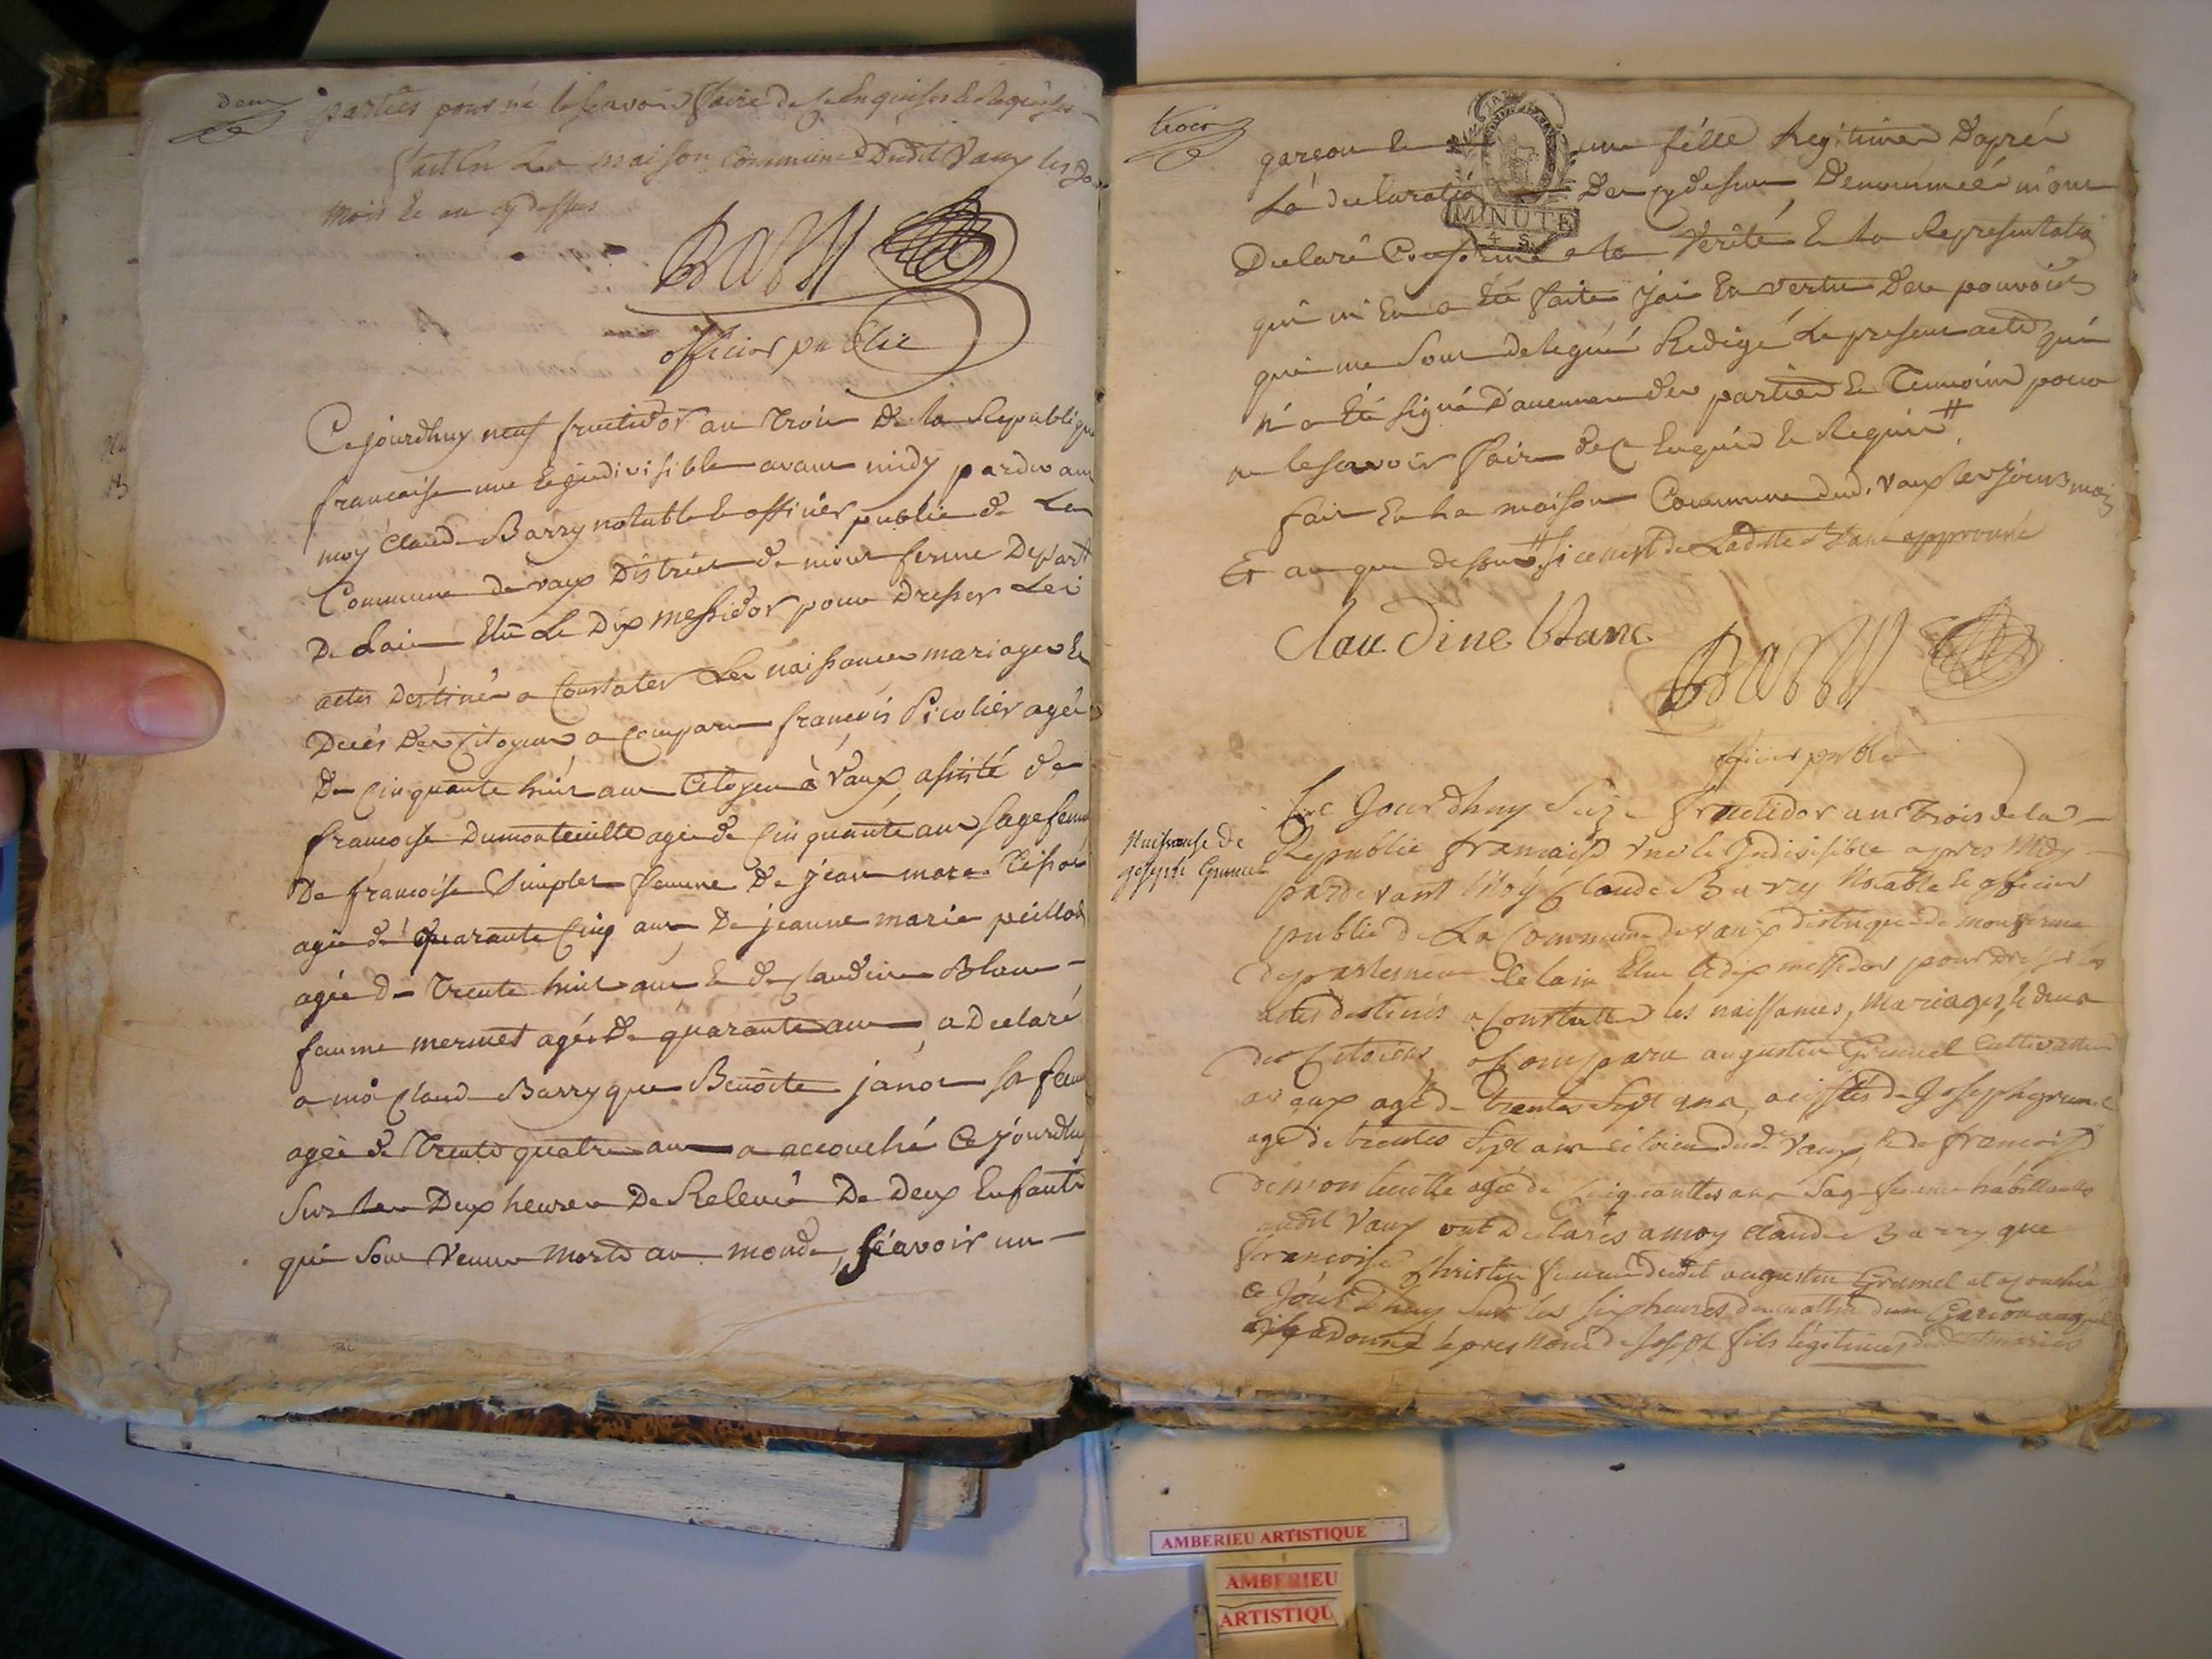 deux
parties pour ne le scavoir faire de ce Enquises et Requises
fait En La maison commune dudit Vaux les Jo
mois et an cy dessus
Barry
officier public
Ce jourdhuy neuf fructidor an trois De la Republique
francaise une et jndivisible avant midy pardevant
moy Claude Barry notable et officier public de La
Commune de vaux District de mont ferme Depart
De Lain Elu Le Dix messidor pour Dresser Les
actes Destinés a Constater Les naissances mariages et
Decés Des Citoyens a Comparu francois Picolier agé
De Cinquante huit ans Citoyen à Vaux, assisté de
francoise Dumonteuille agée de Cinquante ans sagefemme
De francoise Simplet femme De jean marc Tissot
agée de quarante Cinq ans, De jeanne marie peillod
agée De trente huit ans et de Claudine Blanc
famme mermet agée De quarante ans, a Declaré
a moi Claude Barry que Benoite janot sa fem
agée de Trente quatre ans a accouché Ce jourdhuy
Sur Les Deux heures De Relevée De Deux Enfants
qui Sont Venus Morts au monde, scavoir un
trois
garcon et une fille Legitimes Daprés
La declaration Des cy dessus Denommées m'ont
Declaré Conforme a la Verité Et la Representation
qui m'En a Eté faite j'ai En vertu Des pouvoirs
qui me sont delegués Redigé Le present acte qui
n'a Eté signé D'aucune des parties et Temoins pour
ne le scavoir faire de ce Enquis et Requis #
fait En La maison Commune dud. vaux les jours mois
Et an que dessus # si ce nest de Ladite Blanc approuvé
MINUTE
4 S.
Claudine blanc
Barry
officier public
Naissanse de
joseph Grumel
Ce Jourdhuy Seize fructidor an trois de la
Republic francaise Une et Jndivisible apres Midy
pardevant Moy Claude Barry Notable et officier
public de La Commune de vaux distrique de montferme
departement de lain Elue le dix messidor pour dresser les
actes destinés a Constatter les naissances, Mariages, et deces
des Citoiens, a Comparu augustin Grumel Cultivatteur
a vaux agé de trentes Sept ans, assistés de Joseph grumel
agé de trentes Sept ans citoien dud. Vaux, et de francoise
dimonteuille agée de Cinquanttes ans Sage femme habittante
audit Vaux ont Declarés a moy Claude Barry que
francoise Christin femme dudit augustin Grumel at acouchée
Ce Jourdhuy Sur les six heures du mattin dun Garcon auquel
a donné le pres nome de Joseph fils légitimes dudit maries
AMBERIEU ARTISTIQUE
AMBERIEU
ARTISTIQU